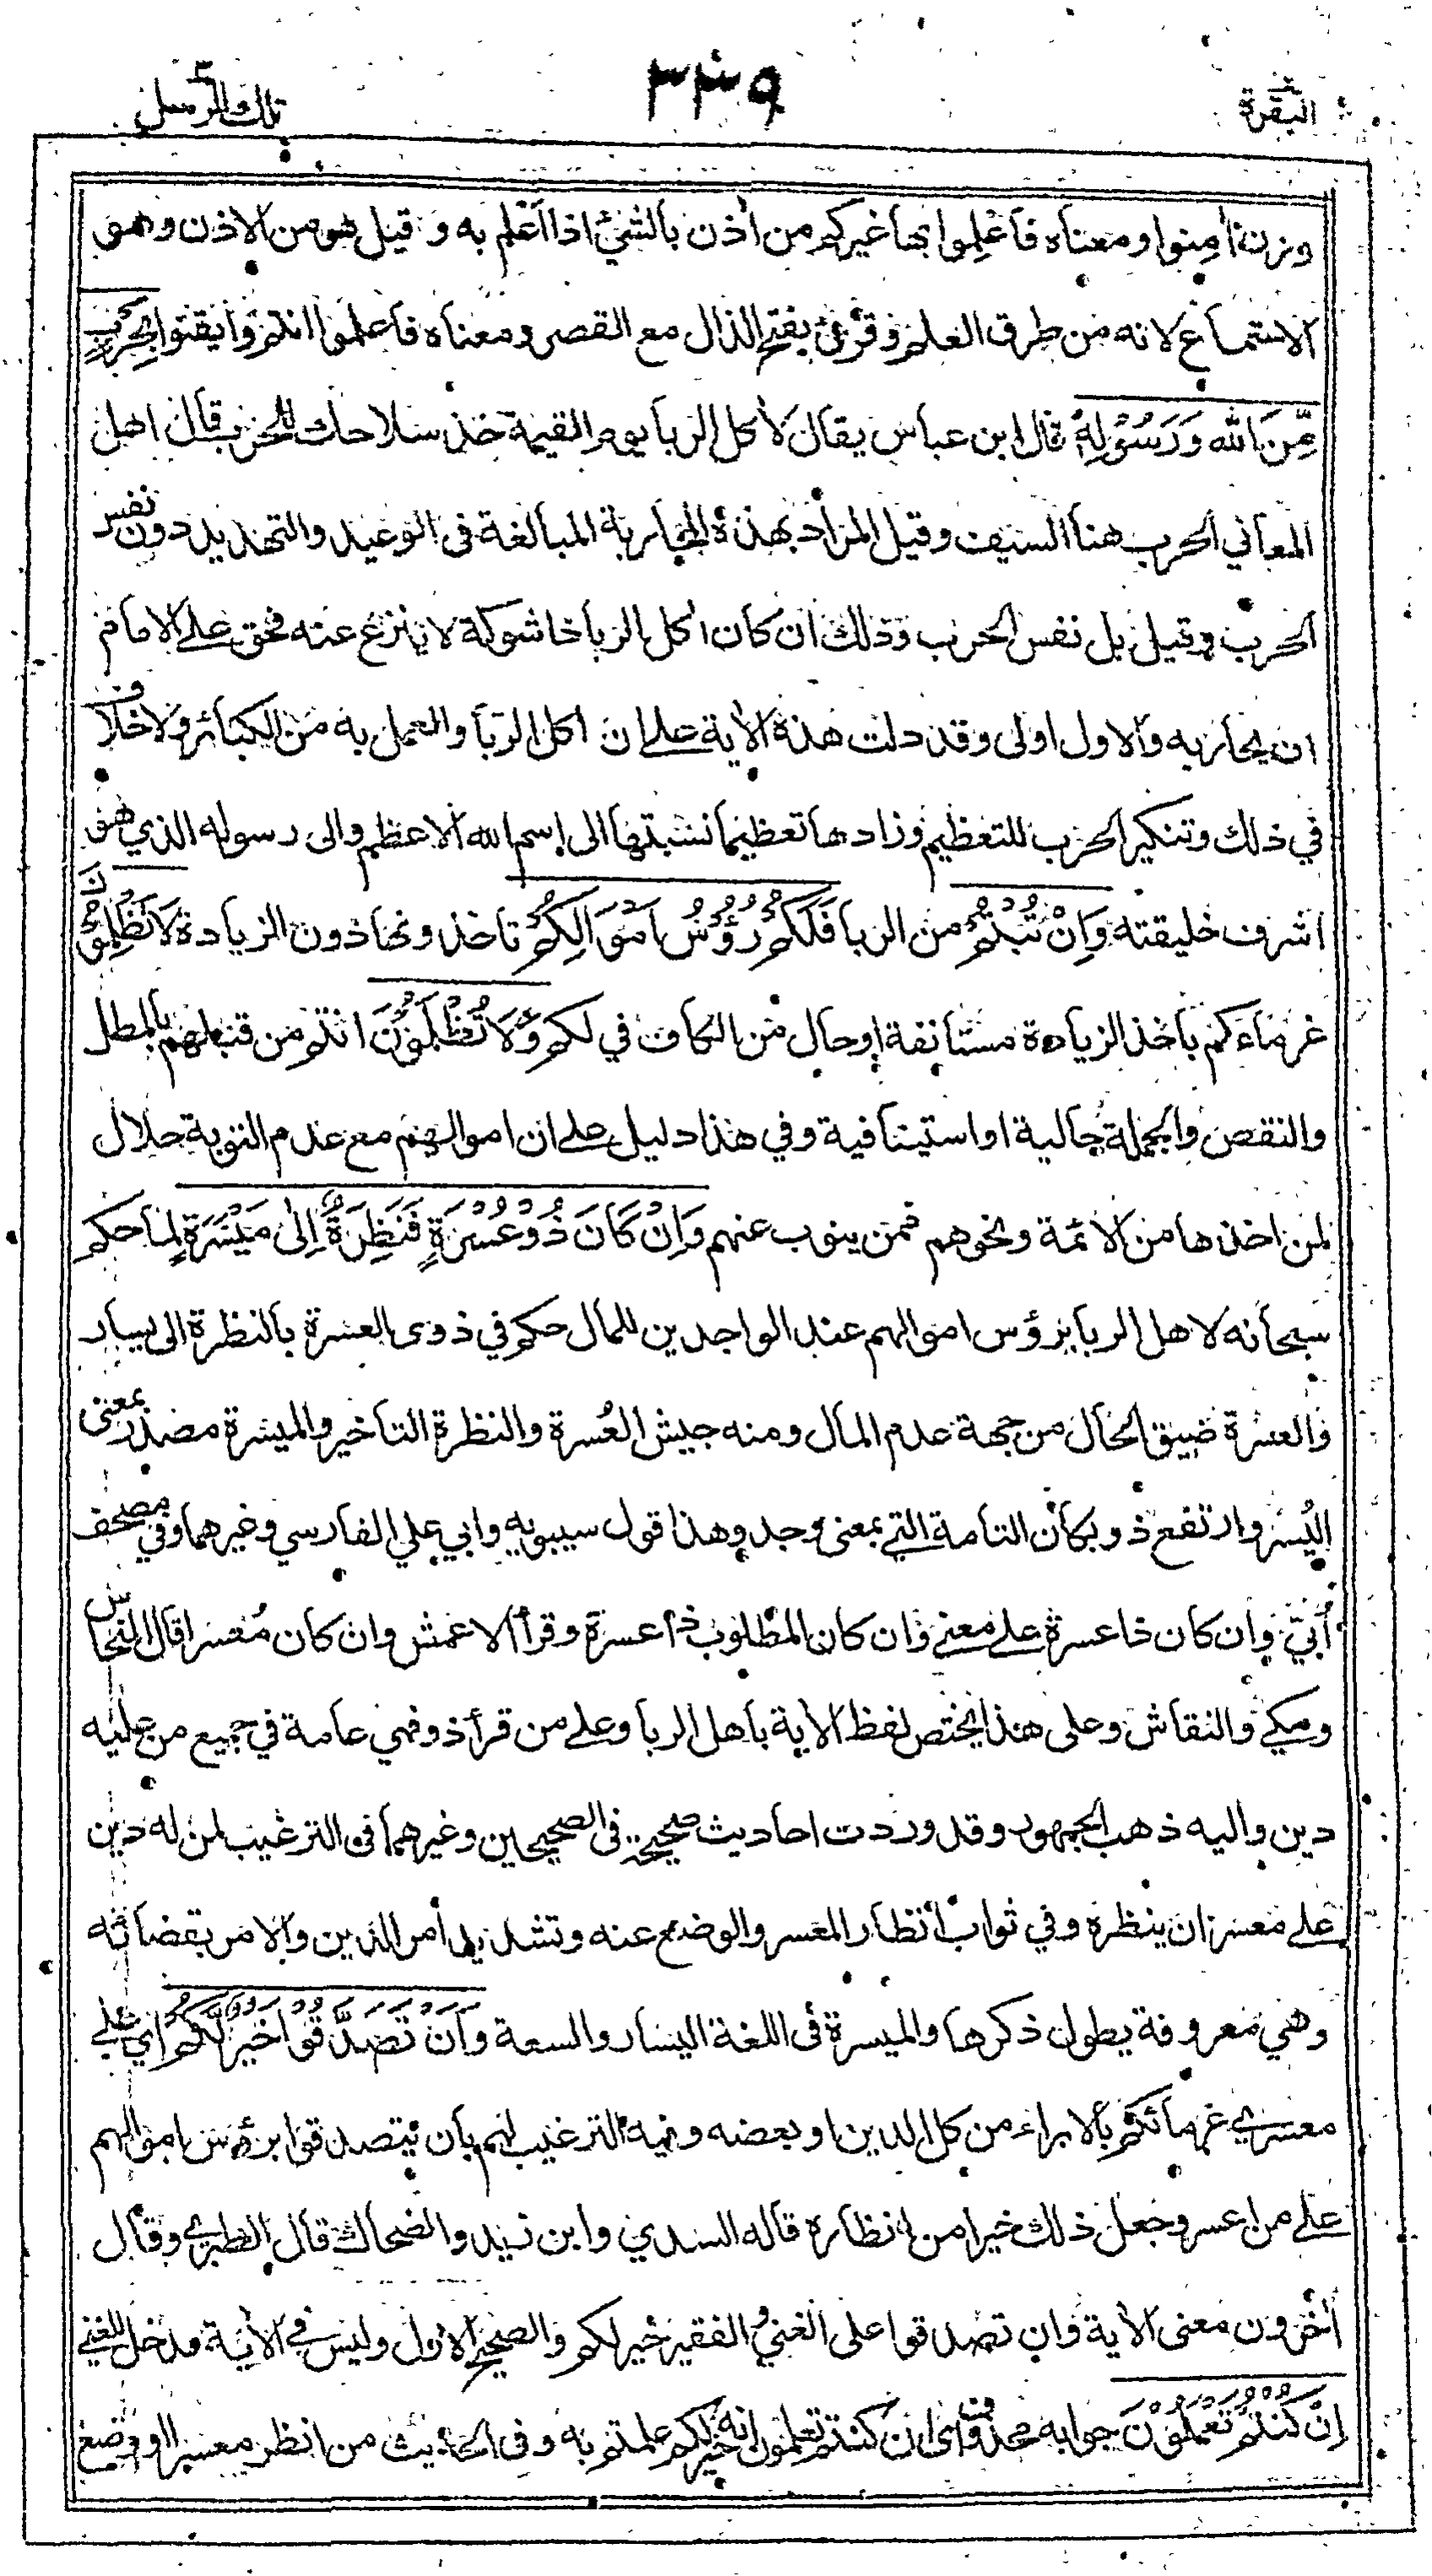 البقرة
٣٣٩
تلك الرسل ٣
وزن آمنوا ومعناه فأعلموا بها غيركم من أذن بالشيء اذا أعلم به وقيل هو من الاذن وهو
الاستماع لانه من طرق العلم وقرئ بفتح الذال مع القصر ومعناه فاعلموا انتم وايقنوا بِحَرْبٍ
مِّنَ اللّٰهِ وَرَسُوْلِهٖ قال ابن عباس يقال لأكل الربا يوم القيمة خذ سلاحك للحرب قال اهل
المعاني الحرب هنا السيف وقيل المراد بهذه المحاربة المبالغة في الوعيد والتهديد دون نفس
الحرب وقيل بل نفس الحرب وذلك ان كان اكل الربا ذا شوكة لا ينزع عنه فحق على الامام
ان يحاربه والاول اولى وقد دلت هذه الآية على ان اكل الربا والعمل به من الكبائر ولا خلاف
في ذلك وتنكير الحرب للتعظيم وزادها تعظيما نسبتها الى اسم الله الاعظم والى رسوله الذي هو
اشرف خليقته وَاِنْ تُبْتُمْ من الربا فَلَكُمْ رُؤُوْسُ اَمْوَالِكُمْ تأخذونها دون الزيادة لَا تَظْلِمُوْنَ
غرماءكم بأخذ الزيادة مستأنفة او حال من الكاف في لكم وَلَا تُظْلَمُوْنَ انتم من قبلهم بالمطل
والنقص والجملة حالية او استينافية وفي هذا دليل على ان اموالهم مع عدم التوبة حلال
لمن اخذها من الائمة ونحوهم ممن ينوب عنهم وَاِنْ كَانَ ذُوْ عُسْرَةٍ فَنَظِرَةٌ اِلٰى مَيْسَرَةٍ لما حكم
سبحانه لاهل الربا برؤس اموالهم عند الواجدين للمال حكم في ذوى العسرة بالنظرة الى يسار
والعسرة ضيق الحال من جهة عدم المال ومنه جيش العُسرة والنظرة التأخير والميسرة مصدر بمعنى
اليُسر وارتفع ذو بكان التامة التي بمعنى وجد وهذا قول سيبويه وابي علي الفارسي وغيرهما وفي مصحف
أُبيّ وان كان ذا عسرة على معنى وان كان المطلوب ذا عسرة وقرأ الاعمش وان كان مُعسرا قال النحاس
ومكي والنقاش وعلى هذا يختص لفظ الآية بأهل الربا وعلى من قرأ ذو فهي عامة في جميع من عليه
دين واليه ذهب الجمهور وقد وردت احاديث صحيحة في الصحيحين وغيرهما في الترغيب لمن له دين
على معسر ان ينظره وفي ثواب انظار المعسر والوضع عنه وتشديد أمر الدين والامر بقضائه
وهي معروفة يطول ذكرها والميسرة في اللغة اليسار والسعة وَاَنْ تَصَدَّقُوْا خَيْرٌ لَّكُمْ اي على
معسري غرمائكم بالابراء من كل الدين او بعضه وفيه الترغيب لهم بأن يتصدقوا برؤس اموالهم
على من اعسر وجعل ذلك خيرا من انظاره قاله السدي وابن زيد والضحاك قال الطبري وقال
آخرون معنى الآية وان تصدقوا على الغني والفقير خير لكم والصحيح الاول وليس في الآية مدخل للغني
اِنْ كُنْتُمْ تَعْلَمُوْنَ جوابه محذوف اى ان كنتم تعلمون انه خير لكم عملتم به وفي الحديث من انظر معسرا او وضع